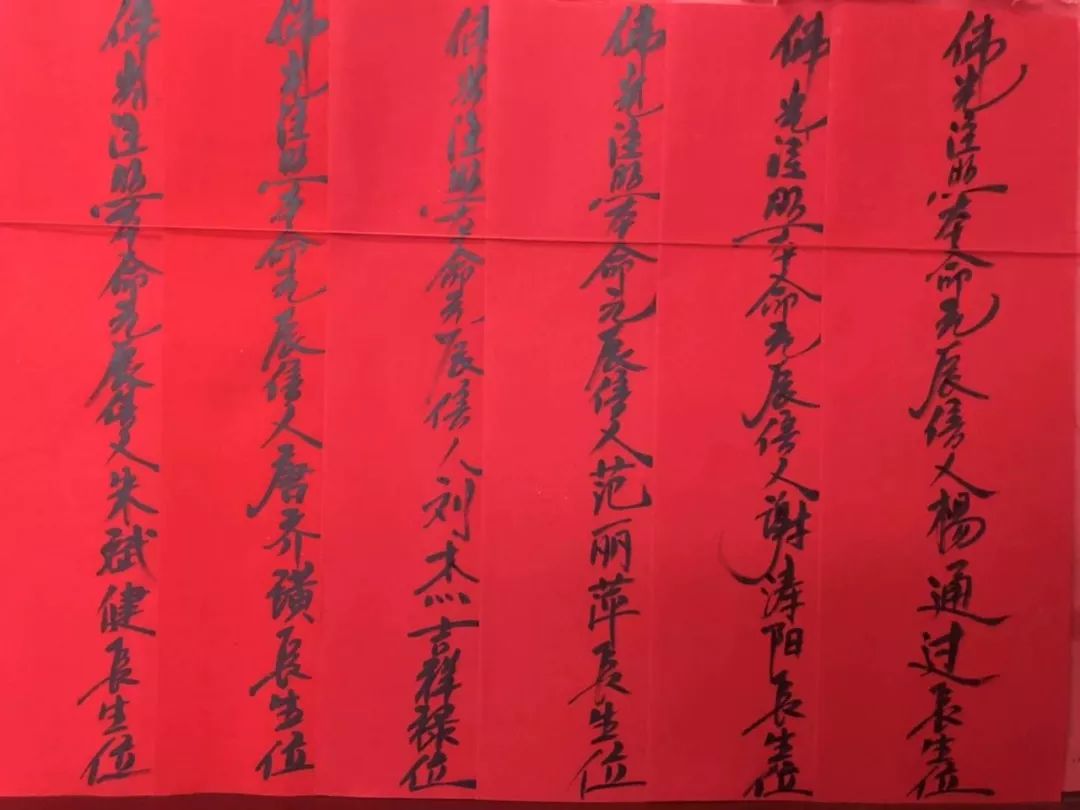 佛光注照本命元辰信人楊通过长生位
佛光注照本命元辰信人谢涛阳长生位
佛光注照本命元辰信人范丽萍长生位
佛光注照本命元辰信人刘杰吉祥禄位
佛光注照本命元辰信人唐齐璜长生位
佛光注照本命元辰信人朱斌健长生位